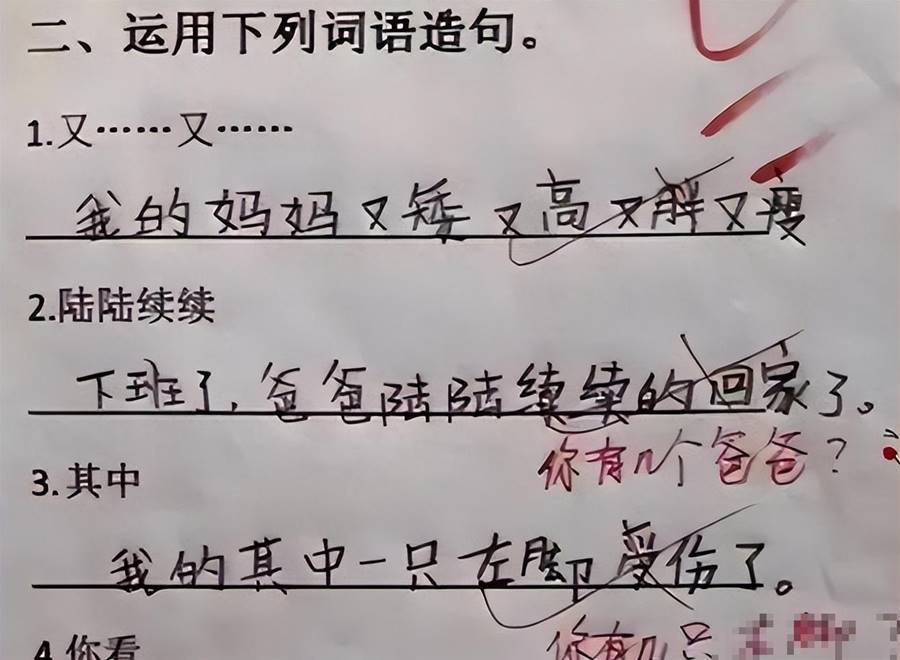 二、运用下列词语造句。
1.又……又……
我的妈妈又矮又高又胖又瘦
2.陆陆续续
下班了,爸爸陆陆续续的回家了。
你有几个爸爸?
3.其中
我的其中一只左脚受伤了。
4.你看
你有几只